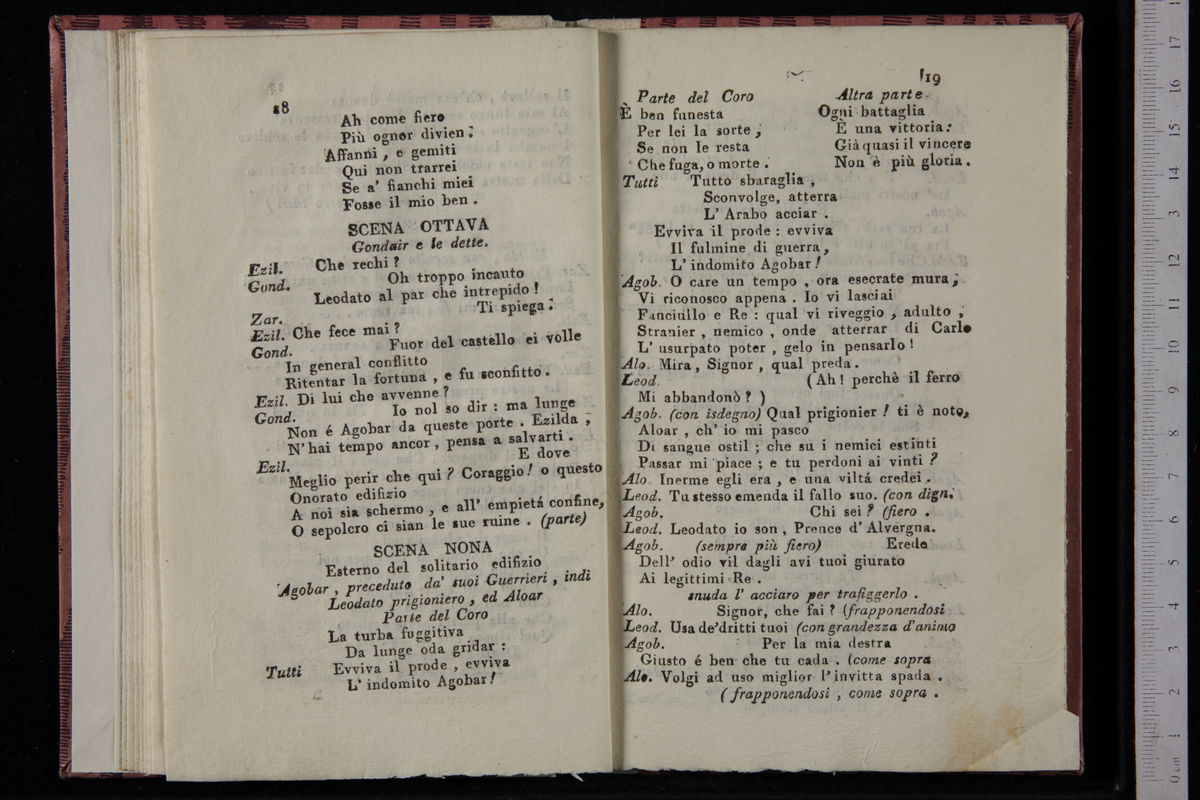 18
Ah come fiero
Più ognor divien.
Affanni, e gemiti
Qui non trarrei
Se a' fianchi miei
Fosse il mio ben.
SCENA OTTAVA
Gondair e le dette.
Ezil. Che rechi?
Gond. Oh troppo incauto
Leodato al par che intrepido!
Zar. Ti spiega.
Ezil. Che fece mai?
Gond. Fuor del castello ei volle
In general conflitto
Ritentar la fortuna, e fu sconfitto.
Ezil. Di lui che avvenne?
Gond. Io nol so dir: ma lunge
Non é Agobar da queste porte. Ezilda,
N'hai tempo ancor, pensa a salvarti.
Ezil. E dove
Meglio perir che qui? Coraggio! o questo
Onorato edifizio
A noi sia schermo, e all' empietá confine,
O sepolcro ci sian le sue ruine. (parte)
SCENA NONA
Esterno del solitario edifizio
Agobar, preceduto da' suoi Guerrieri, indi
Leodato prigioniero, ed Aloar
Parte del Coro
La turba fuggitiva
Da lunge oda gridar:
Tutti Evviva il prode, evviva
L' indomito Agobar!
19
Parte del Coro Altra parte
È ben funesta Ogni battaglia
Per lei la sorte, È una vittoria:
Se non le resta Già quasi il vincere
Che fuga, o morte. Non è più gloria.
Tutti Tutto sbaraglia,
Sconvolge, atterra
L' Arabo acciar.
Evviva il prode: evviva
Il fulmine di guerra,
L' indomito Agobar!
Agob. O care un tempo, ora esecrate mura,
Vi riconosco appena. Io vi lasciai
Fanciullo e Re: qual vi riveggio, adulto,
Stranier, nemico, onde atterrar di Carlo
L' usurpato poter, gelo in pensarlo!
Alo. Mira, Signor, qual preda.
Leod. (Ah! perchè il ferro
Mi abbandonò?)
Agob. (con isdegno) Qual prigionier! ti è noto,
Aloar, ch' io mi pasco
Di sangue ostil; che su i nemici estinti
Passar mi piace; e tu perdoni ai vinti?
Alo. Inerme egli era, e una viltá credei.
Leod. Tu stesso emenda il fallo suo. (con dign.
Agob. Chi sei? (fiero.
Leod. Leodato io son, Prence d' Alvergna.
Agob. (sempre più fiero) Erede
Dell' odio vil dagli avi tuoi giurato
Ai legittimi Re.
snuda l' acciaro per trafiggerlo.
Alo. Signor, che fai? (frapponendosi
Leod. Usa de' dritti tuoi (con grandezza d'animo
Agob. Per la mia destra
Giusto é ben che tu cada. (come sopra
Alo. Volgi ad uso miglior l' invitta spada.
(frapponendosi, come sopra.
0 cm 1 2 3 4 5 6 7 8 9 10 11 12 13 14 15 16 17